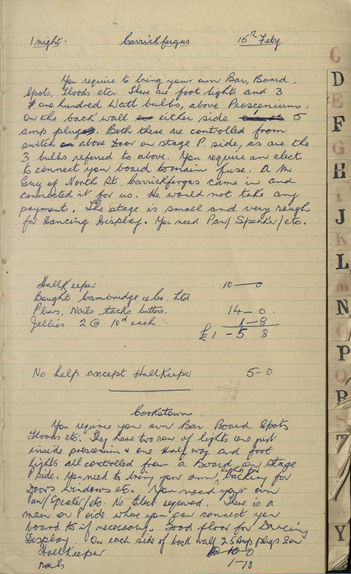 1 night. Carrickfergus 15th Feby
You require to bring your own Bar, Board,
Spots, Floods etc. There are foot lights and 3
one hundred Watt bulbs, above Proscenium.
On the back wall either side 5
amp plugs. Both these are controlled from
switch above door on stage P side, as are the
3 bulbs referred to above. You require an elect
to connect your board to main fuse. A Mr
Guy of North St Carrickfergus came in and
connected it for us. He would not take any
payment. The stage is small and very rough
for Dancing Display. You need Pan/Speaker/etc.
Hall Keeper 10 — 0
Bought Cambridge Ltd
Nails, tacks 14 — 0.
Jellies 2 @ 10d each 1 — 8
£1 — 5 8
No help except Hall Keeper 5 - 0
Cookstown
You require your own Bar Board Spots
Floods etc. They have two row of lights one just
inside proscenium & one Half way and foot
lights all controlled from a Board on Stage
P side. You need to bring your own Backing for
Doors Windows etc. You need your own
Pan/Speaker/etc. No Elect required. There is a
main on P side where you can connect your
board to if necessary. Good floor for Dancing
Display. On each side of back wall 2 5 Amp plugs
Hall Keeper 10 - 0
nails 1 -
C
D
E
F
G
H
I
J
K
L
M
N
O
P
Q
R
S
T
Y